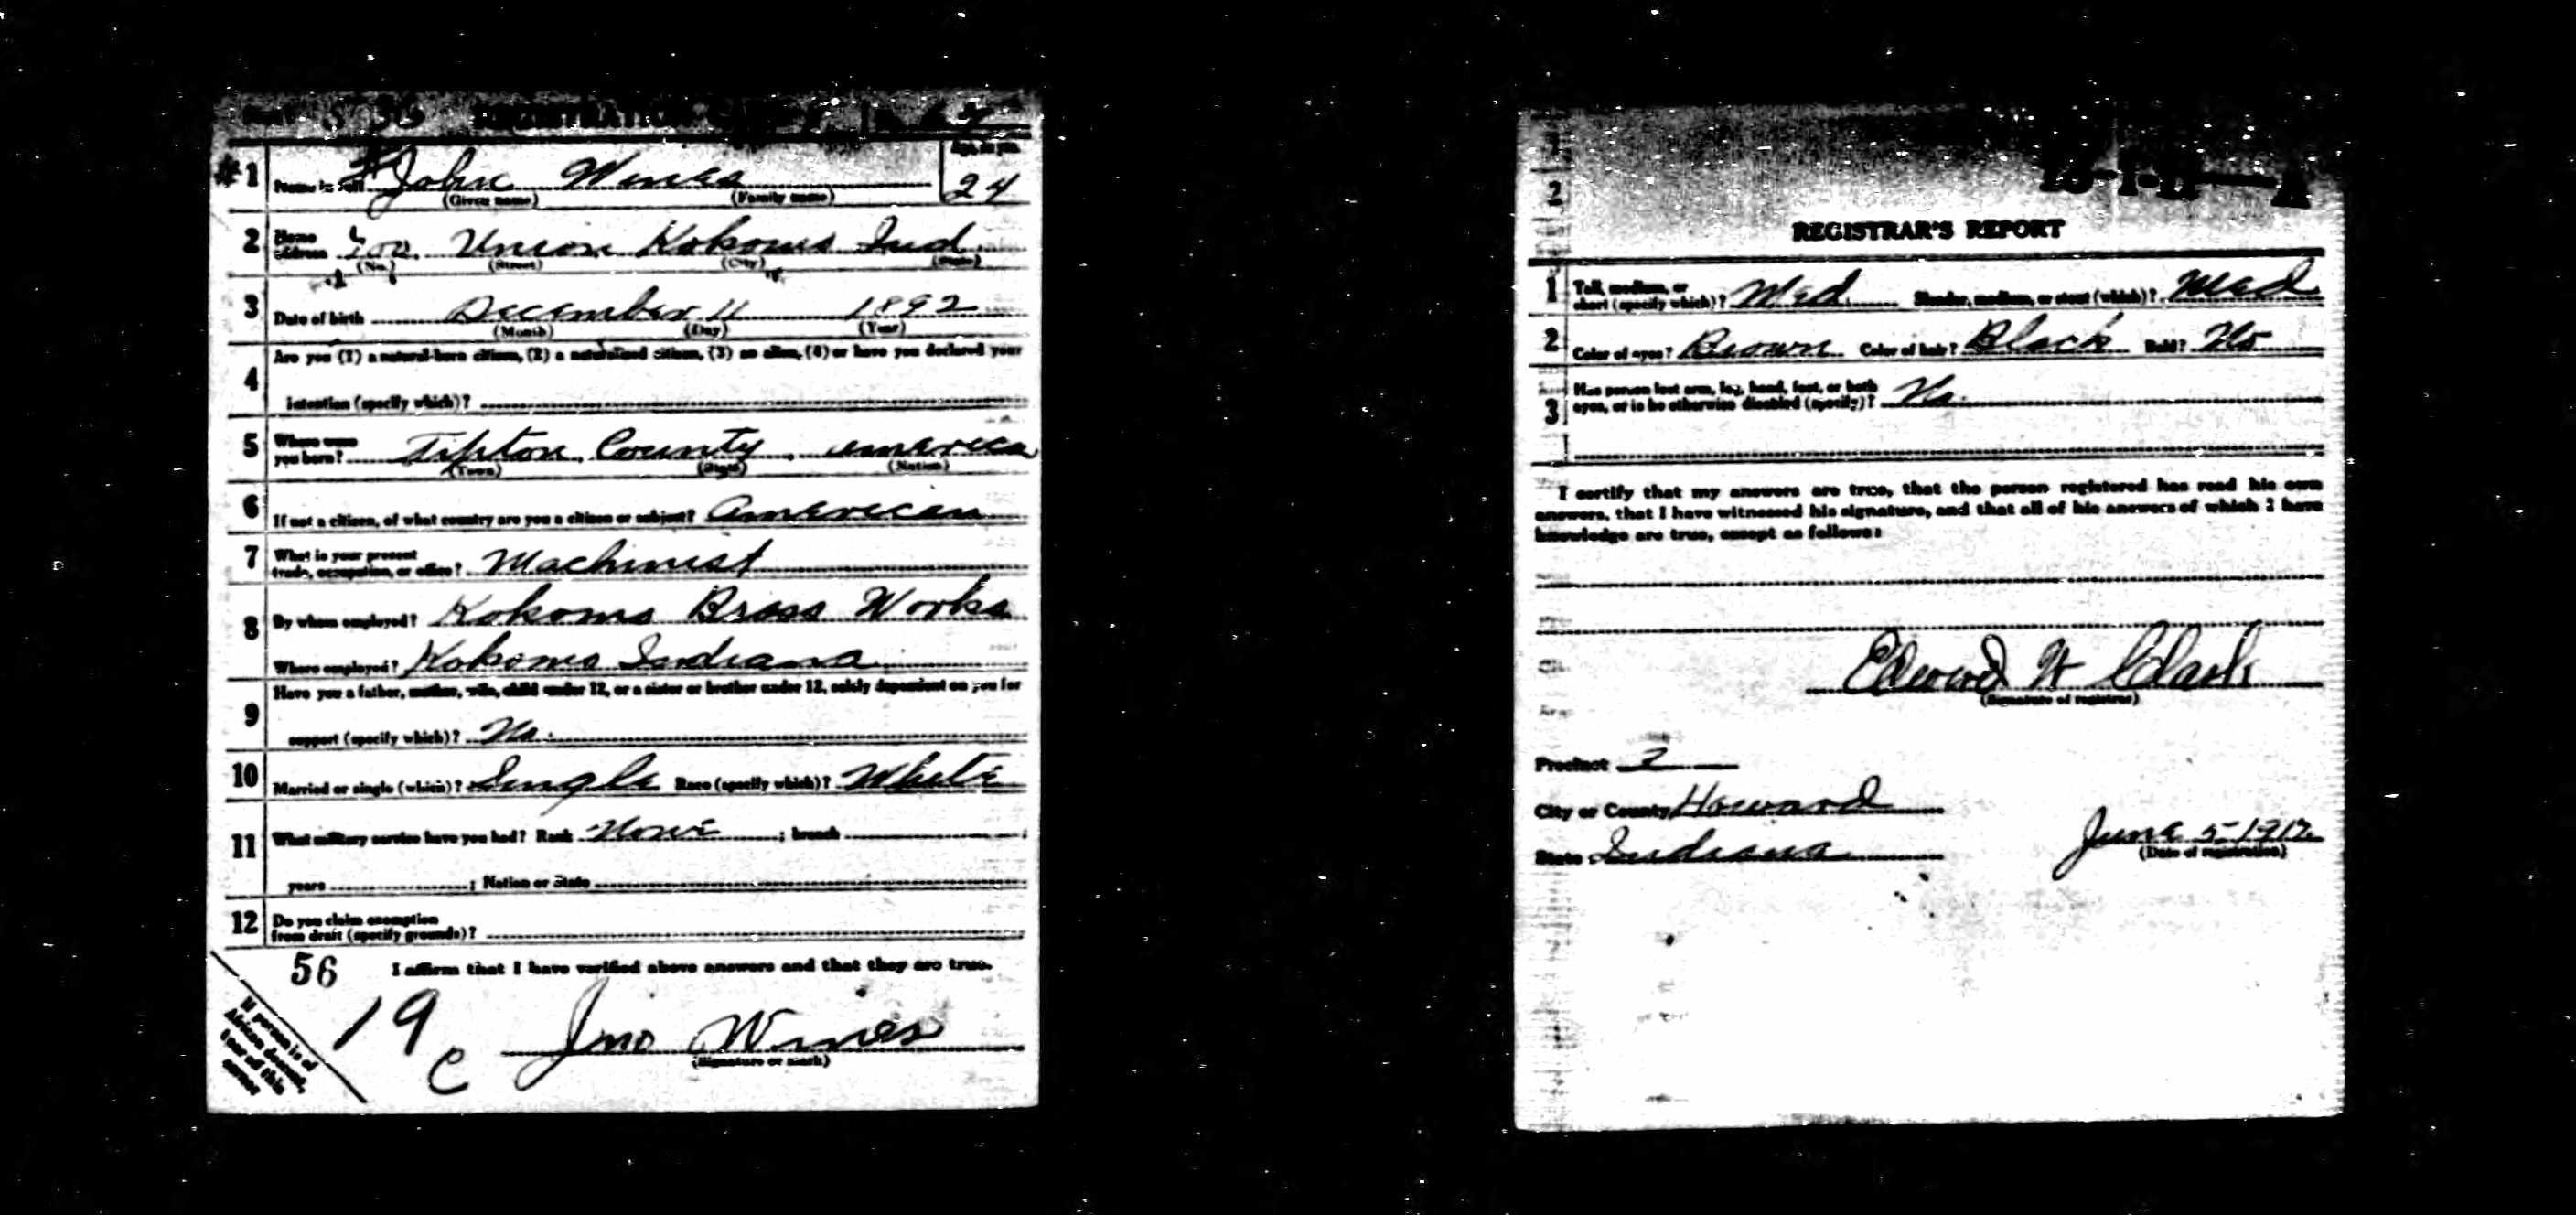 REGISTRATION CARD
#1 Name in full John Wines Age, in yrs.
(Given name) (Family name) 24
2 Home address 100 Union Kokomo Ind
(No.) (Street) (City) (State)
3 Date of birth December 11 1892
(Month) (Day) (Year)
4 Are you (1) a natural-born citizen, (2) a naturalized citizen, (3) an alien, (4) or have you declared your
intention (specify which)?
5 Where were you born? Tipton County America
(Town) (State) (Nation)
6 If not a citizen, of what country are you a citizen or subject? American
7 What is your present trade, occupation, or office? Machinist
8 By whom employed? Kokomo Brass Works
Where employed? Kokomo Indiana
9 Have you a father, mother, wife, child under 12, or a sister or brother under 12, solely dependent on you for
support (specify which)? No.
10 Married or single (which)? Single Race (specify which)? White
11 What military service have you had? Rank None ; branch ;
years ; Nation or State
12 Do you claim exemption from draft (specify grounds)?
56 I affirm that I have verified above answers and that they are true.
19 C Jno Wines
(Signature or mark)
If person is of African descent, tear off this corner
1
2
A
REGISTRAR'S REPORT
1 Tall, medium, or short (specify which)? Med. Slender, medium, or stout (which)? Med
2 Color of eyes? Brown Color of hair? Black Bald? No
3 Has person lost arm, leg, hand, foot, or both eyes, or is he otherwise disabled (specify)? No.
I certify that my answers are true, that the person registered has read his own
answers, that I have witnessed his signature, and that all of his answers of which I have
knowledge are true, except as follows:
Edward W Clark
(Signature of registrar)
Precinct 2
City or County Howard
State Indiana June 5-1917
(Date of registration)